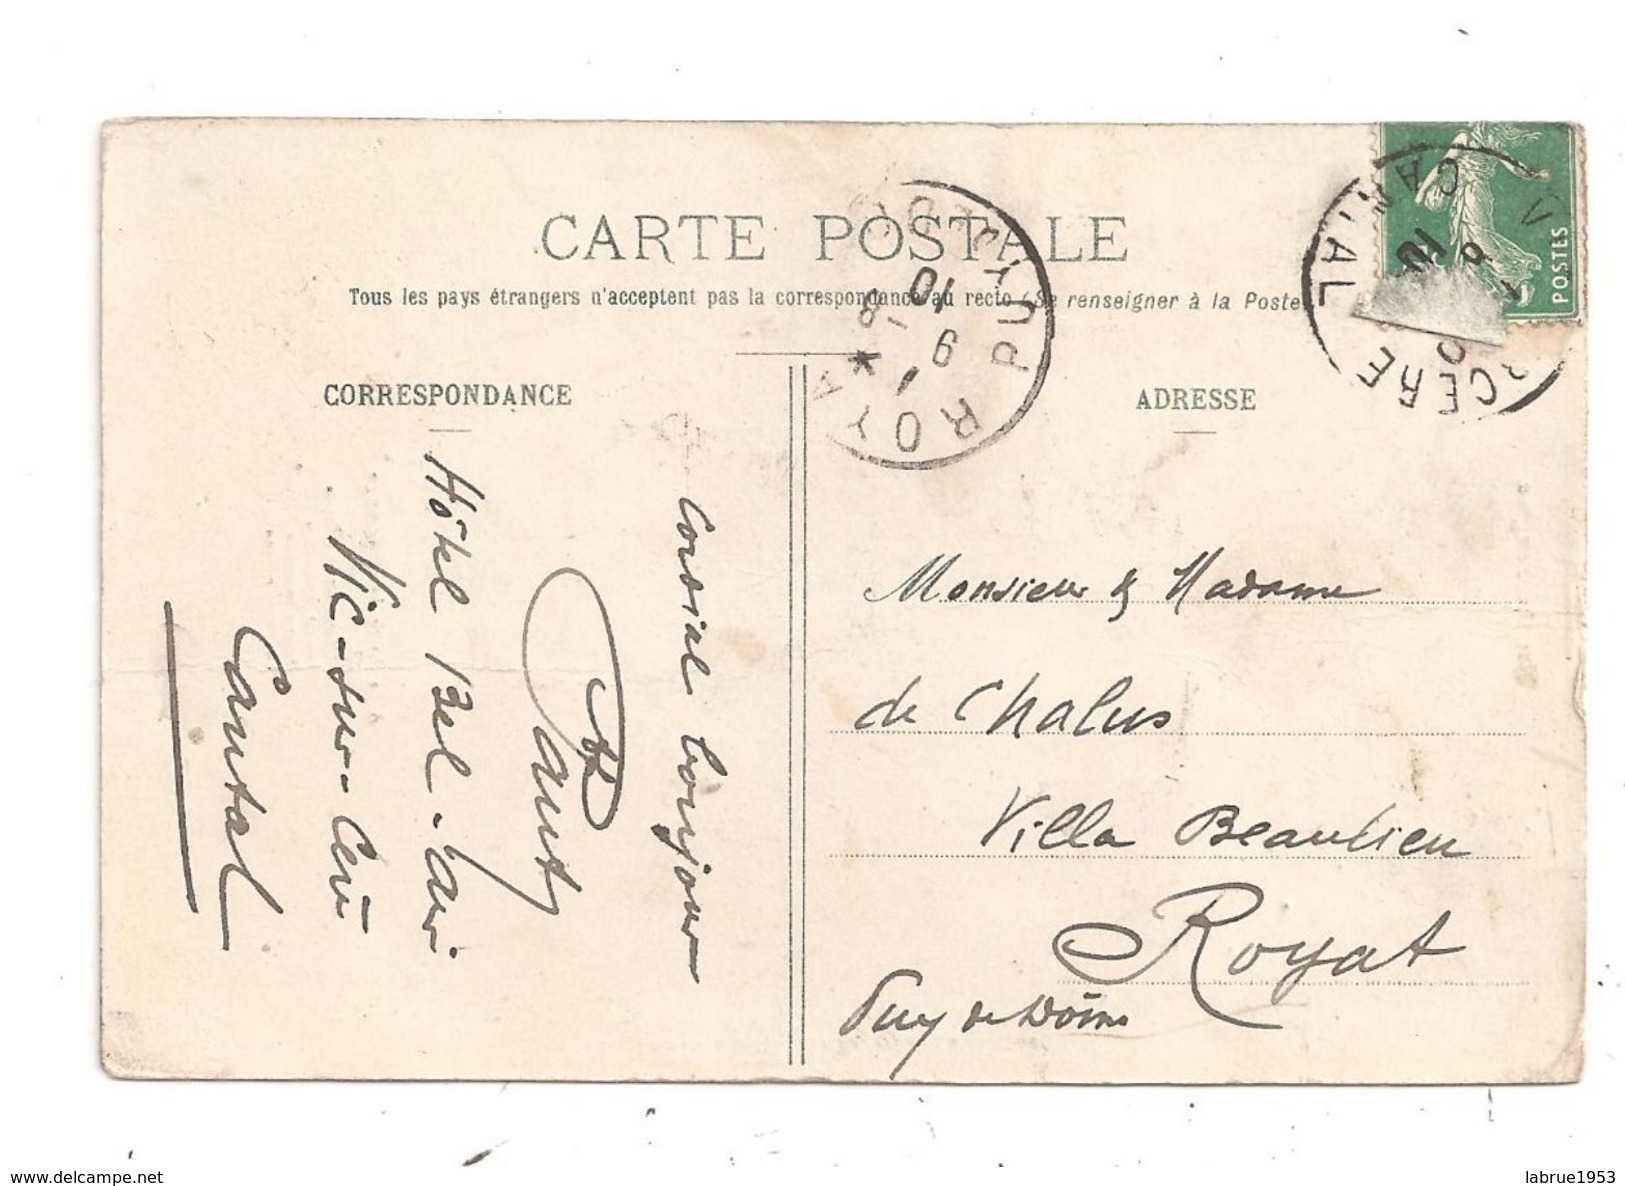 CARTE POSTALE
Tous les pays étrangers n'acceptent pas la correspondance au recto (Se renseigner à la Poste)
CORRESPONDANCE
ADRESSE
Cordial bonjour
Hôtel Bel-Air
Vic-sur-Cère
Cantal
Monsieur & Madame
de Chalus
Villa Beaulieu
Royat
Puy de Dôme
POSTES
CANTAL
CERE
ROYA
PUY
10
labrue1953